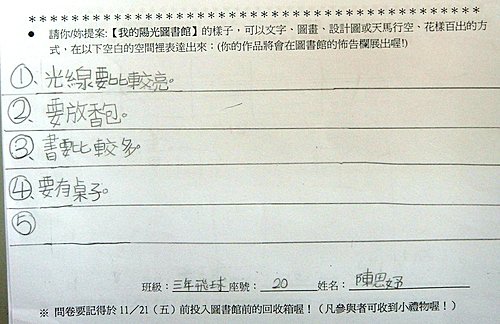 ************************************
● 請你/妳提案:【我的陽光圖書館】的樣子，可以文字、圖畫、設計圖或天馬行空、花樣百出的方
式，在以下空白的空間裡表達出來：(你的作品將會在圖書館的佈告欄展出喔!)
①、光線要比較亮。
②、要放香包。
③、書要比較多。
④、要有桌子。
⑤
班級：三年飛球 座號：20 姓名：陳思妤
※ 問卷要記得於 11／21（五）前投入圖書館前的回收箱喔！（凡參與者可收到小禮物喔！）